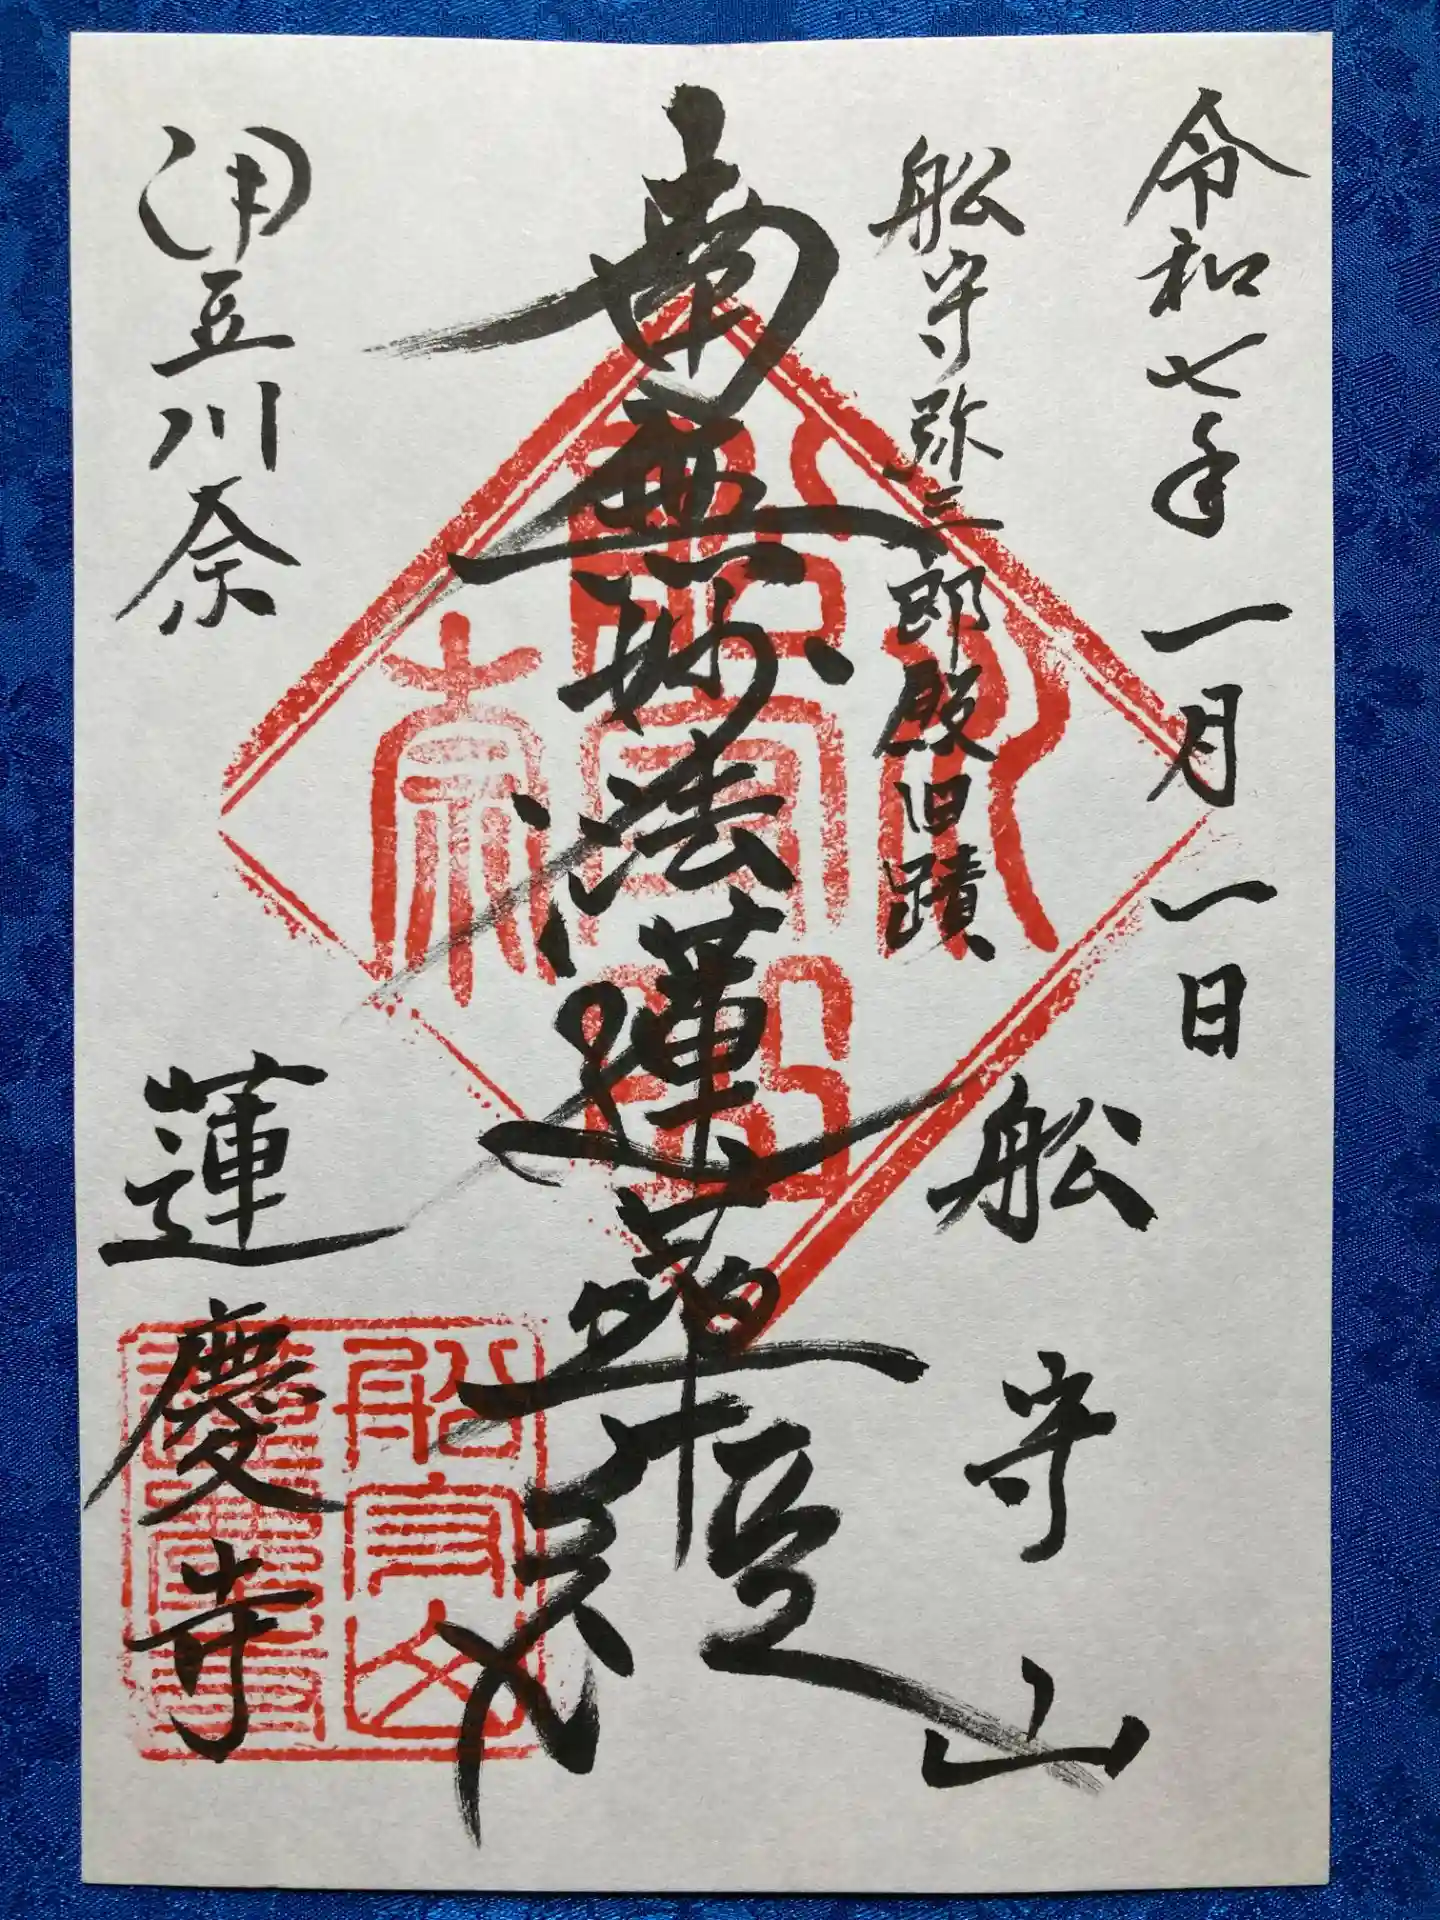 令和七年一月一日
船守弥三郎殿旧蹟
船守山
南無妙法蓮華経
伊豆川奈
蓮慶寺
船守山
蓮慶寺